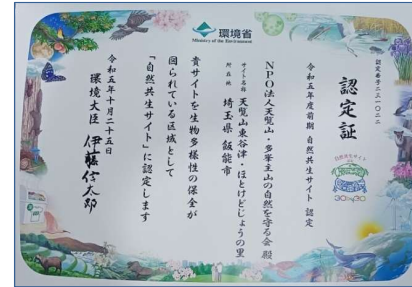 環境省
Ministry of the Environment
認定番号 二三一〇二二
認定証
令和五年度前期 自然共生サイト 認定
NPO法人天覧山・多峯主山の自然を守る会 殿
サイト名称 天覧山東谷津・ほとけどじょうの里
所在地 埼玉県 飯能市
貴サイトを生物多様性の保全が
図られている区域として
「自然共生サイト」に認定します
令和五年十月二十五日
環境大臣 伊藤信太郎